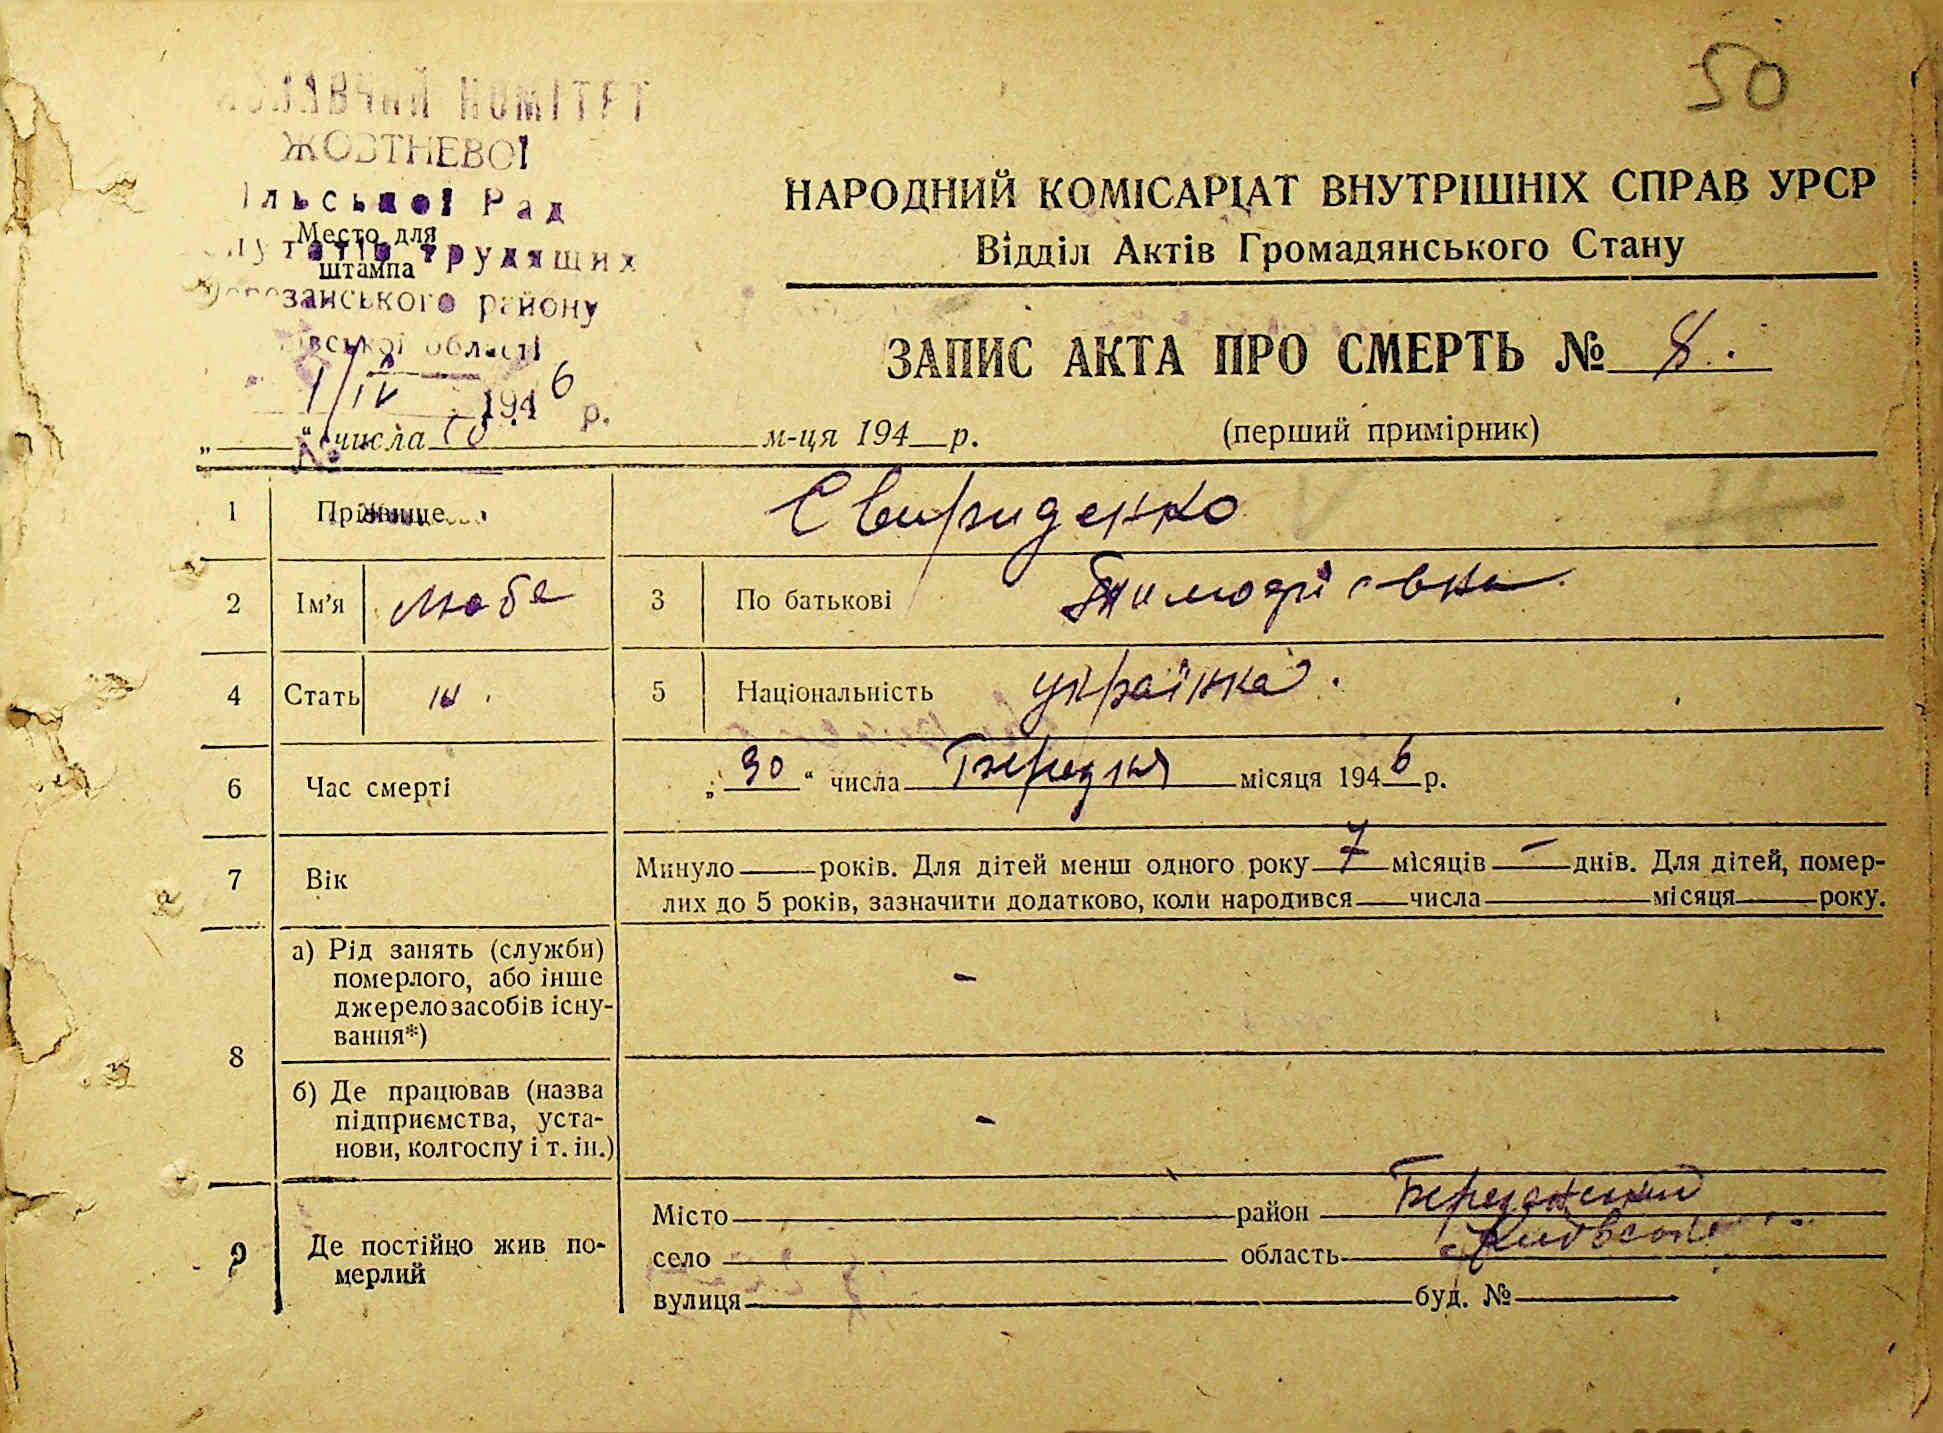 50
ЖОВТНЕВОЇ
ільської Рад
Место для
штампа
трудящих
занського району
ївської області
1/IV 1946 р.
НАРОДНИЙ КОМІСАРІАТ ВНУТРІШНІХ СПРАВ УРСР
Відділ Актів Громадянського Стану
ЗАПИС АКТА ПРО СМЕРТЬ № 8.
„ “ числа м-ця 194 р.
(перший примірник)
1 Прізвище Свириденко
2 Ім’я Люба 3 По батькові
4 Стать 5 Національність українка.
6 Час смерті „30“ числа місяця 1946 р.
7 Вік Минуло років. Для дітей менш одного року 7 місяців – днів. Для дітей, помер-
лих до 5 років, зазначити додатково, коли народився числа місяця року.
8 а) Рід занять (служби)
померлого, або інше
джерело засобів існу-
вання*) -
б) Де працював (назва
підприємства, уста-
нови, колгоспу і т. ін.) -
9 Де постійно жив по-
мерлий
Місто район Березанський
село область Київська
вулиця буд. №